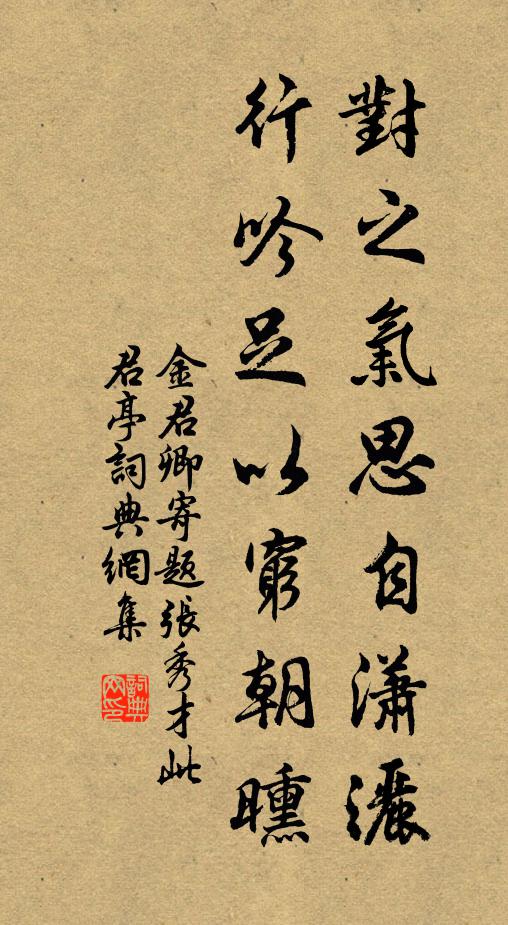 對之氣思自瀟灑
行吟足以窮朝曛
金君卿寄題張秀才此
君亭詞典網集
詞典網印